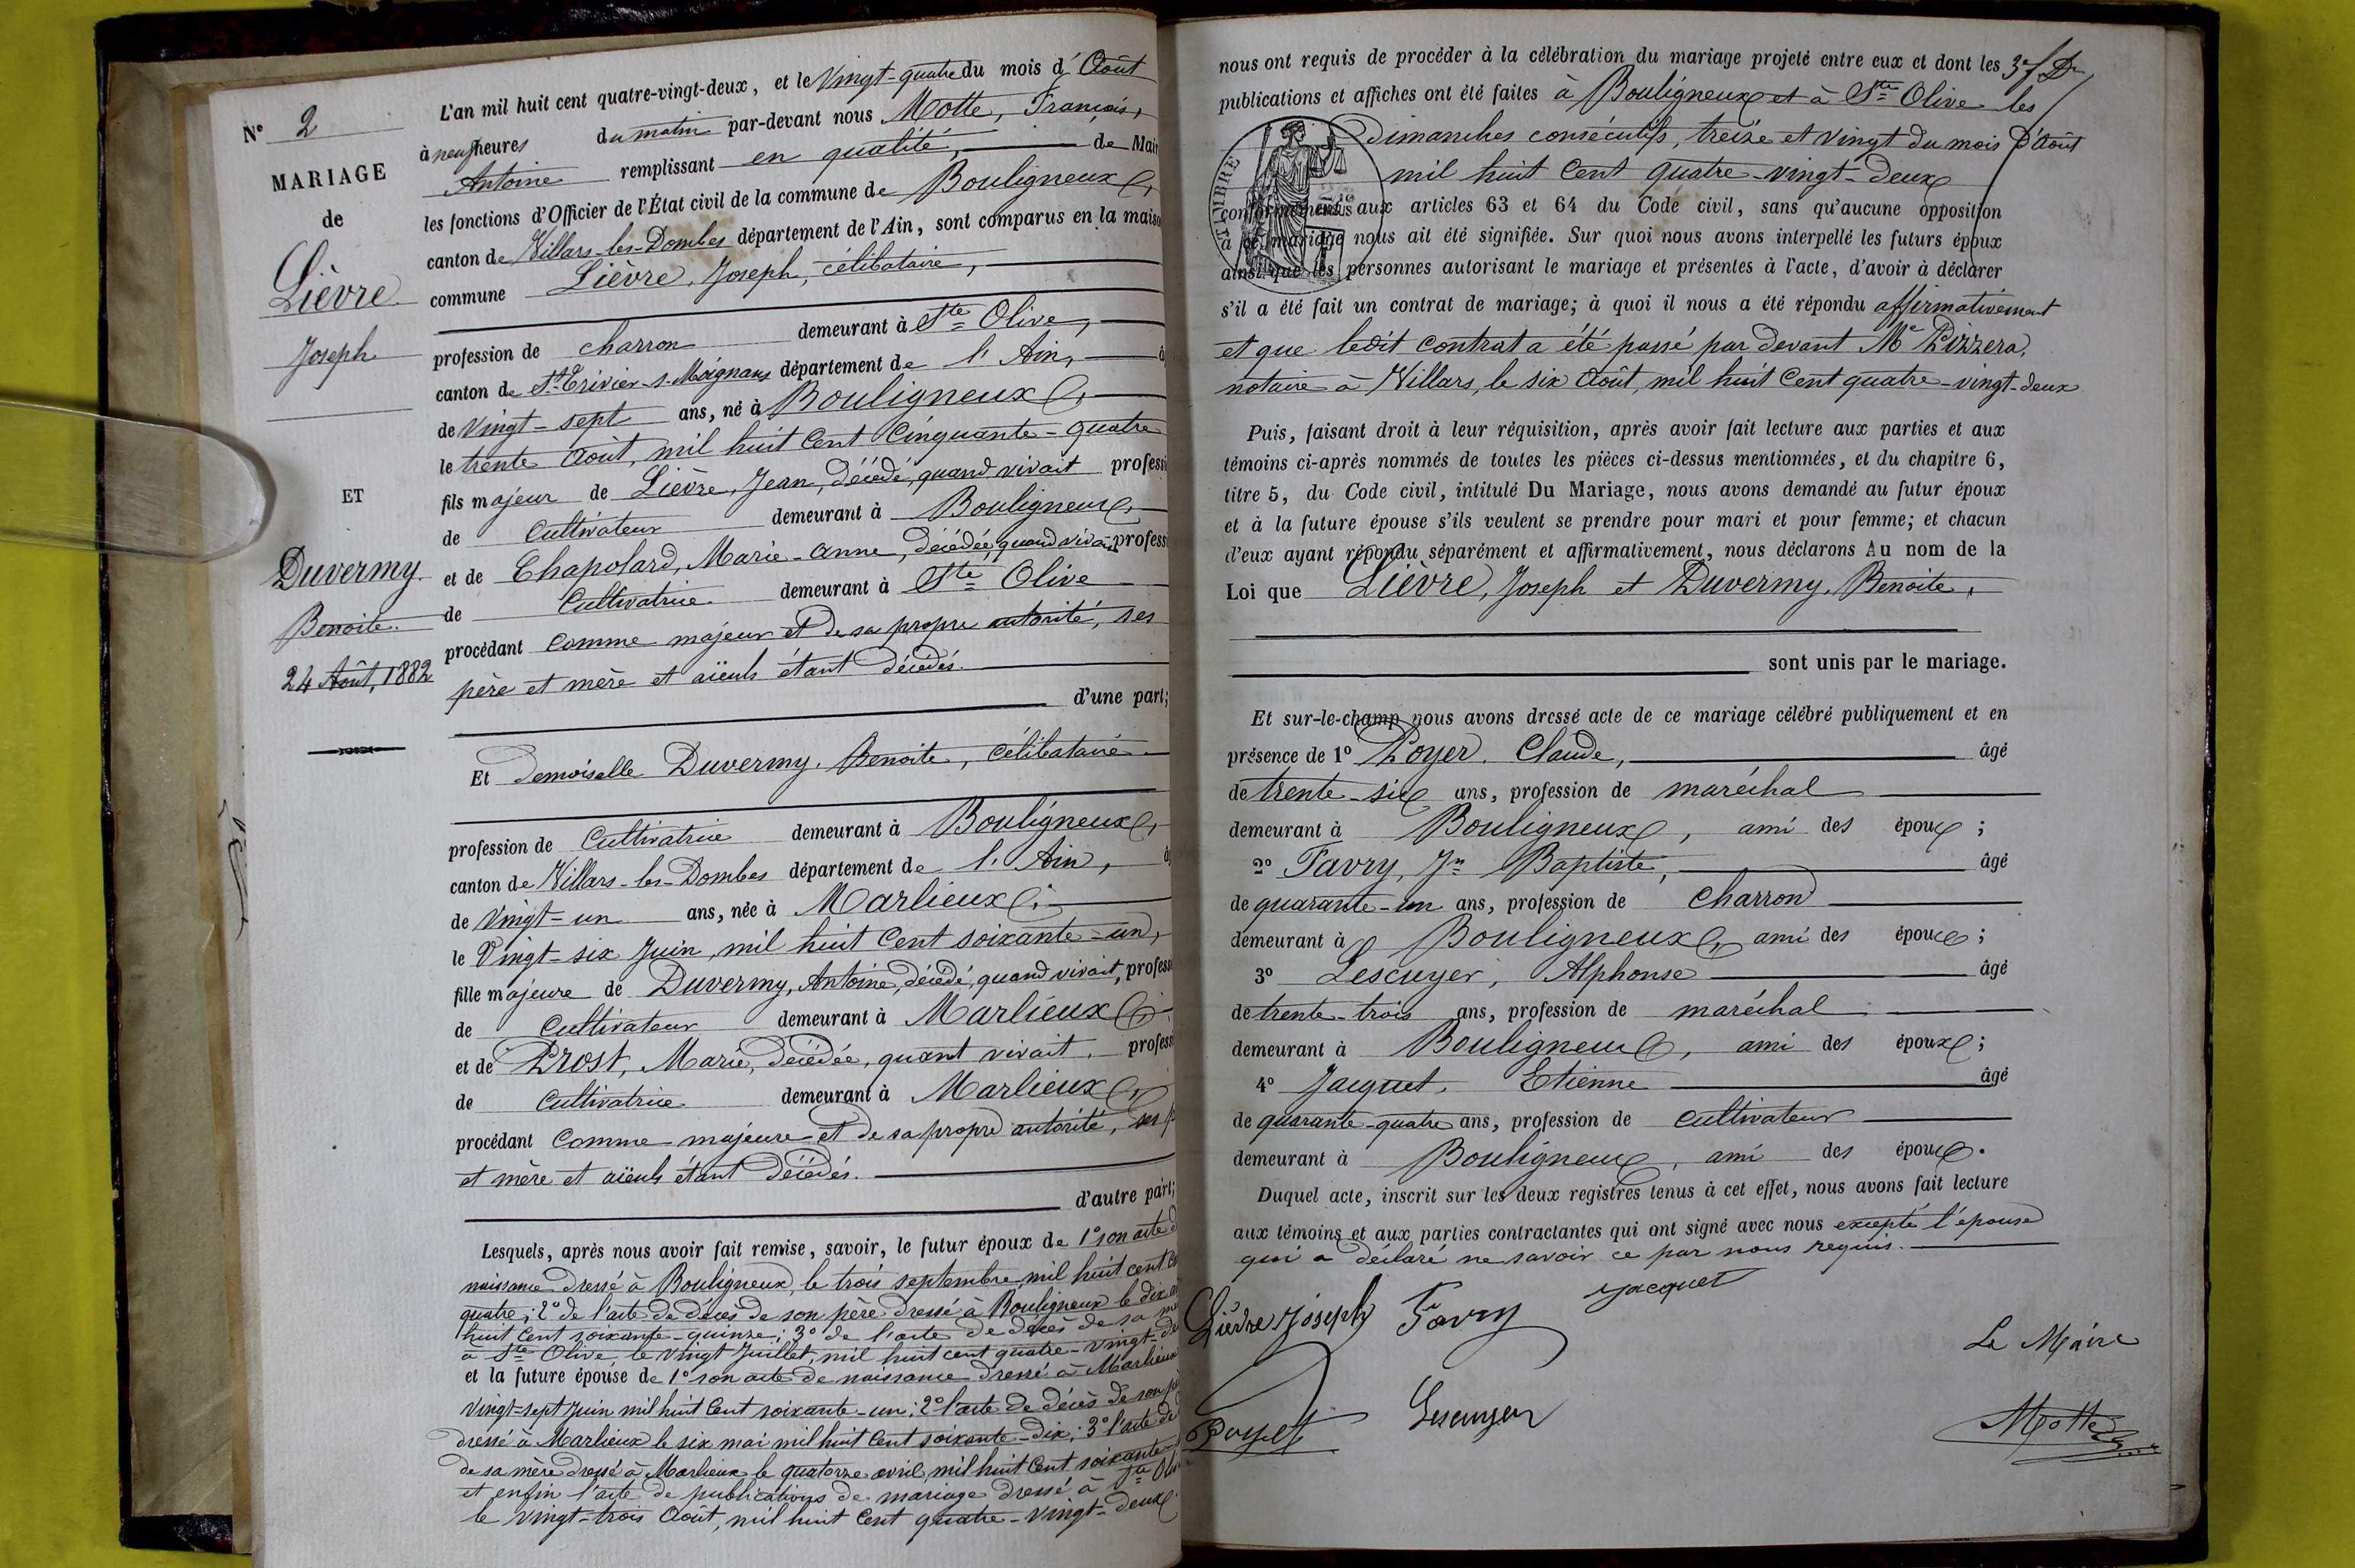 N° 2
MARIAGE
de
Lièvre
Joseph
ET
Duvermy
Benoite.
24 Août, 1882
L'an mil huit cent quatre-vingt-deux, et le Vingt-quatre du mois d'Août
à neuf heures du matin par-devant nous Motte, François,
Antoine remplissant en qualité, de Mair
les fonctions d'Officier de l'État civil de la commune de Bouligneux,
canton de Villars-les-Dombes département de l'Ain, sont comparus en la maiso
commune Lièvre, Joseph, célibataire,
profession de charron demeurant à Ste Olive,
canton de St. Trivier-s.-Moignans département de l'Ain, â
de Vingt-sept ans, né à Bouligneux,
le trente Août, mil huit Cent Cinquante-quatre
fils majeur de Lièvre, Jean, décédé, quand vivait professi
de Cultivateur demeurant à Bouligneux,
et de Chapolard, Marie-Anne, décédée, quand vivait, profess
de Cultivatrice demeurant à Ste Olive
procédant comme majeur et de sa propre autorité, ses
père et mère et aïeuls étant décédés.
d'une part;
Et demoiselle Duvermy, Benoite, célibataire
profession de Cultivatrice demeurant à Bouligneux,
canton de Villars-les-Dombes département de l'Ain, âg
de Vingt-un ans, née à Marlieux,
le Vingt-six Juin, mil huit Cent soixante-un,
fille majeure de Duvermy, Antoine, décédé, quand vivait, profess
de Cultivateur demeurant à Marlieux
et de Prost, Marie, décédée, quant vivait, profess
de Cultivatrice demeurant à Marlieux,
procédant comme majeure et de sa propre autorité, ses p
et mère et aïeuls étant décédés.
d'autre part;
Lesquels, après nous avoir fait remise, savoir, le futur époux de 1° son acte d
naissance dressé à Bouligneux, le trois septembre mil huit cent
quatre; 2° de l'acte de décès de son père dressé à Bouligneux le dix
huit Cent soixante-quinze; 3° de l'acte de décès de sa
à Ste Olive, le vingt Juillet, mil huit cent quatre-vingt-de
et la future épouse de 1° son acte de naissance dressé à Marlieux
Vingt-sept Juin mil huit Cent soixante-un; 2° l'acte de décès de son
dressé à Marlieux le six mai mil huit Cent soixante-dix; 3° l'acte de
de sa mère dressé à Marlieux le quatorze avril, mil huit Cent soixante
et enfin l'acte de publications de mariage dressé à Ste Oli
le vingt-trois Août, mil huit Cent quatre-Vingt-deux
nous ont requis de procéder à la célébration du mariage projeté entre eux et dont les
publications et affiches ont été faites à Bouligneux et à Ste Olive les
dimanches consécutifs, treize et vingt du mois d'Août
mil huit Cent quatre-vingt-deux
TIMBRE
conformément aux articles 63 et 64 du Code civil, sans qu'aucune opposition
à ce mariage nous ait été signifiée. Sur quoi nous avons interpellé les futurs époux
ainsi que les personnes autorisant le mariage et présentes à l'acte, d'avoir à déclarer
s'il a été fait un contrat de mariage; à quoi il nous a été répondu affirmativement
et que ledit contrat a été passé par devant Me Pizzera,
notaire à Villars, le six Août, mil huit Cent quatre-vingt-deux
Puis, faisant droit à leur réquisition, après avoir fait lecture aux parties et aux
témoins ci-après nommés de toutes les pièces ci-dessus mentionnées, et du chapitre 6,
titre 5, du Code civil, intitulé Du Mariage, nous avons demandé au futur époux
et à la future épouse s'ils veulent se prendre pour mari et pour femme; et chacun
d'eux ayant répondu séparément et affirmativement, nous déclarons Au nom de la
Loi que Lièvre, Joseph et Duvermy, Benoite,
sont unis par le mariage.
Et sur-le-champ nous avons dressé acte de ce mariage célébré publiquement et en
présence de 1° Poyer, Claude, âgé
de trente-six ans, profession de maréchal
demeurant à Bouligneux, ami des époux;
2° Favry, Jn Baptiste, âgé
de quarante-un ans, profession de Charron
demeurant à Bouligneux, ami des époux;
3° Lescuyer, Alphonse âgé
de trente-trois ans, profession de maréchal
demeurant à Bouligneux, ami des époux;
4° Jacquet, Etienne âgé
de quarante-quatre ans, profession de cultivateur
demeurant à Bouligneux, ami des époux.
Duquel acte, inscrit sur les deux registres tenus à cet effet, nous avons fait lecture
aux témoins et aux parties contractantes qui ont signé avec nous excepté l'épouse
qui a déclaré ne savoir ce par nous requis.
Lièvre Joseph Favry Jacquet
Le Maire
Lescuyer
Motte